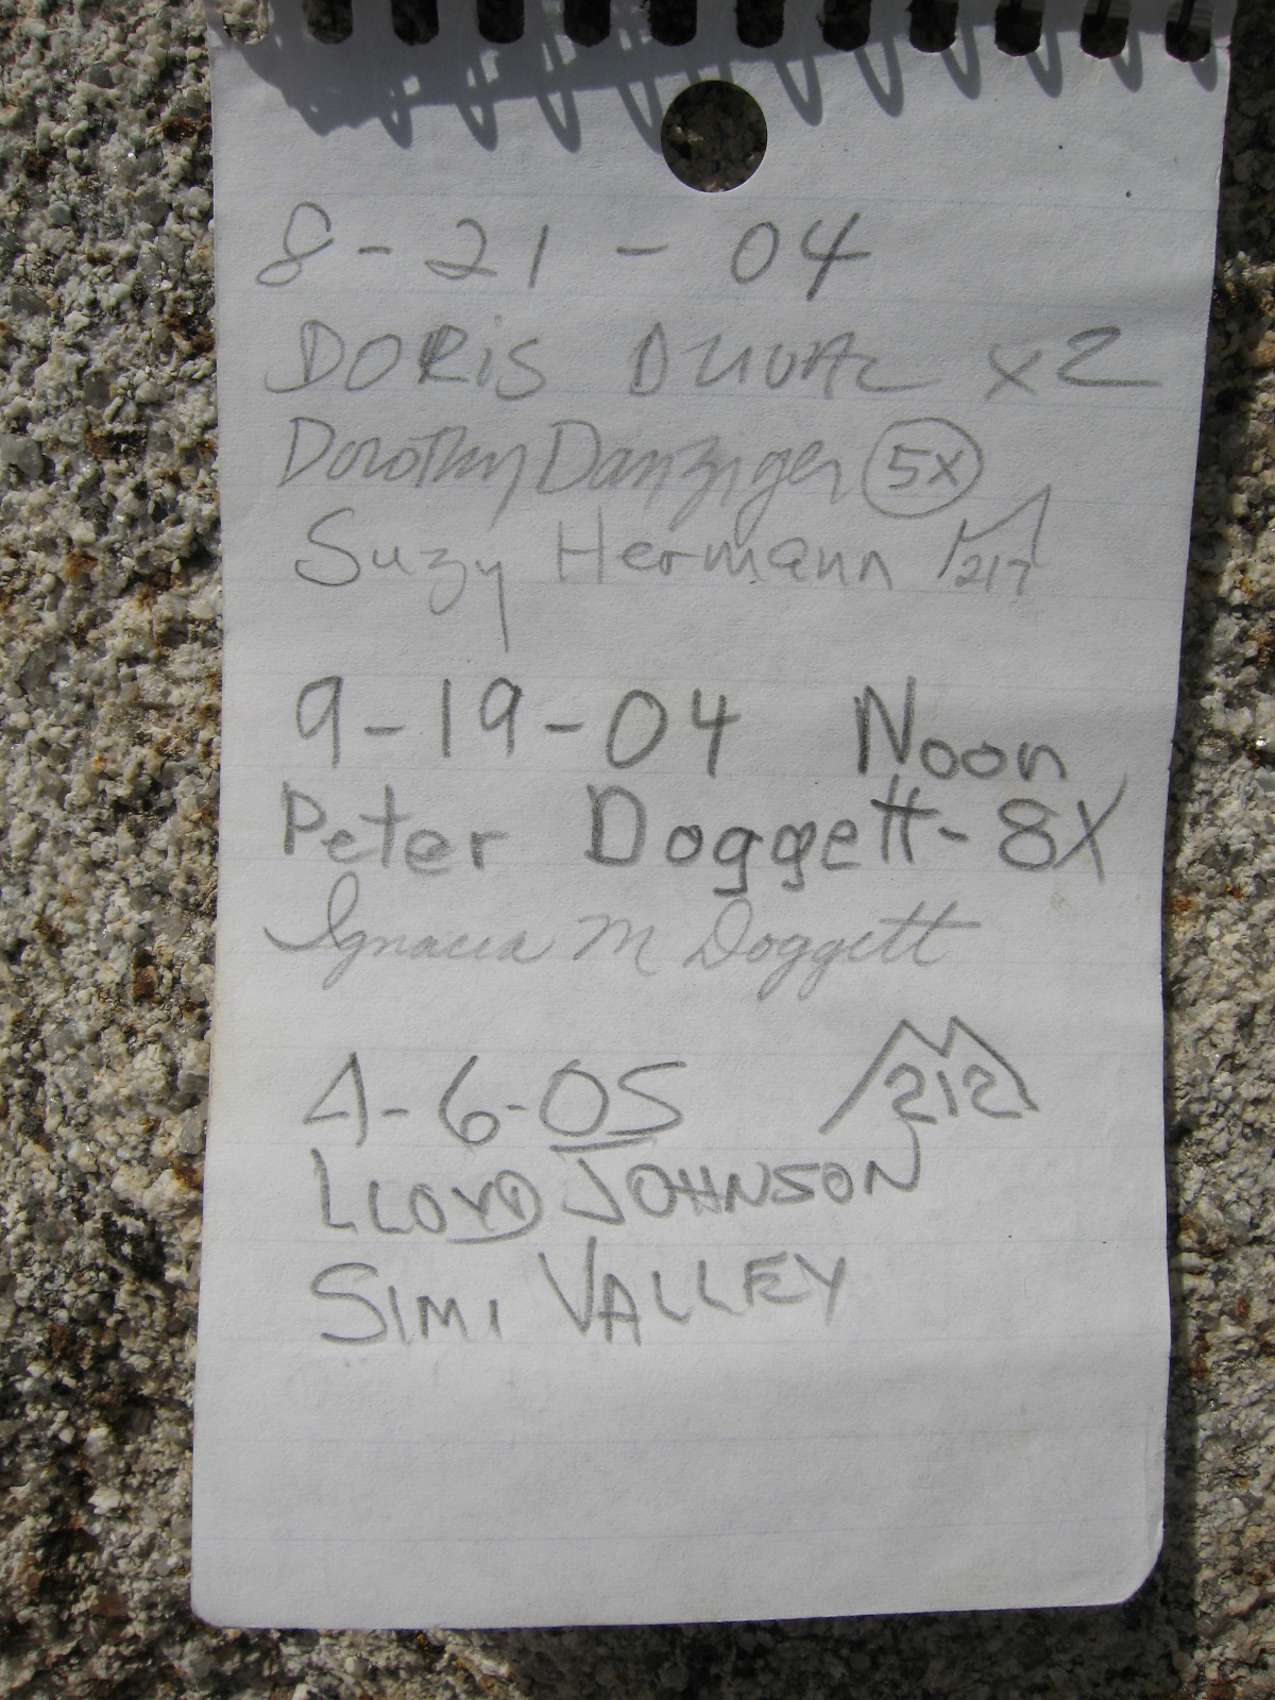 8-21-04
DORiS DUVAL x2
Dorothy Danziger 5x
Suzy Hermann 217
9-19-04 Noon
Peter Doggett-8X
Ignacia M Doggett
4-6-05 212
LLOYD JOHNSON
SIMI VALLEY